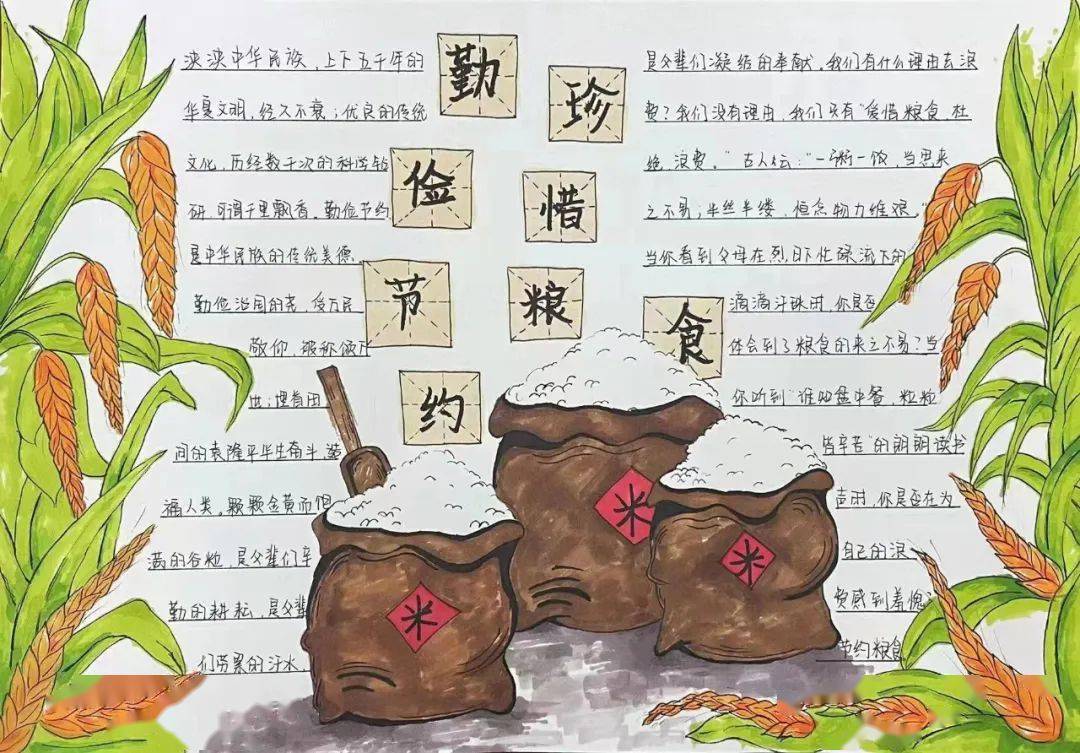 勤俭节约
珍惜粮食
泱泱中华民族,上下五千年的
华夏文明,经久不衰;优良的传统
文化,历经数千次的科学钻
研,可谓千里飘香。勤俭节约
是中华民族的传统美德。
勤俭治国的
受万民
敬仰,被称做
埋首田
间的袁隆平毕生奋斗,造
福人类。颗颗金黄而饱
满的谷粒,是父辈们辛
勤的耕耘,是父辈
们劳累的汗水,
是父辈们凝结的奉献。我们有什么理由去浪
费?我们没有理由,我们只有"爱惜粮食,杜
绝浪费。"古人云:"一粥一饭,当思来
之不易;半丝半缕,恒念物力维艰。"
当你看到父母在烈日下忙碌流下的
滴滴汗珠时,你是否
体会到了粮食的来之不易?当
你听到"谁知盘中餐,粒粒
皆辛苦"的朗朗读书
声时,你是否在为
自己的浪
费感到羞愧?
节约粮食
米
米
米